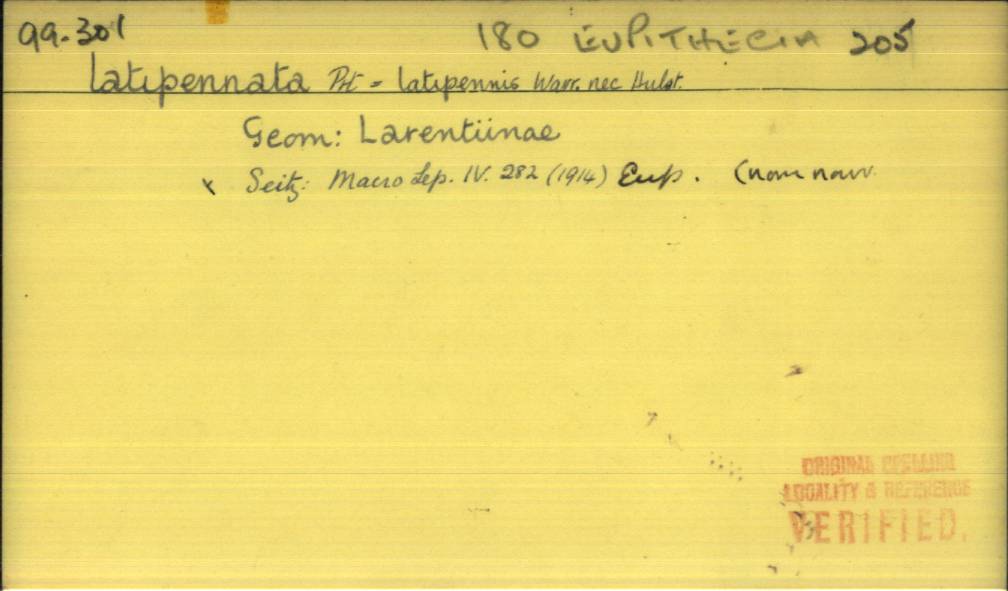 99.301 180 EUPITHECIA 205
latipennata Prt = latipennis Warr. nec Hulst.
Geom: Larentiinae
x Seitz: Macro Lep. IV. 282 (1914) Eup. (nom nov.
ORIGINAL SPELLING
LOCALITY & REFERENCE
VERIFIED.